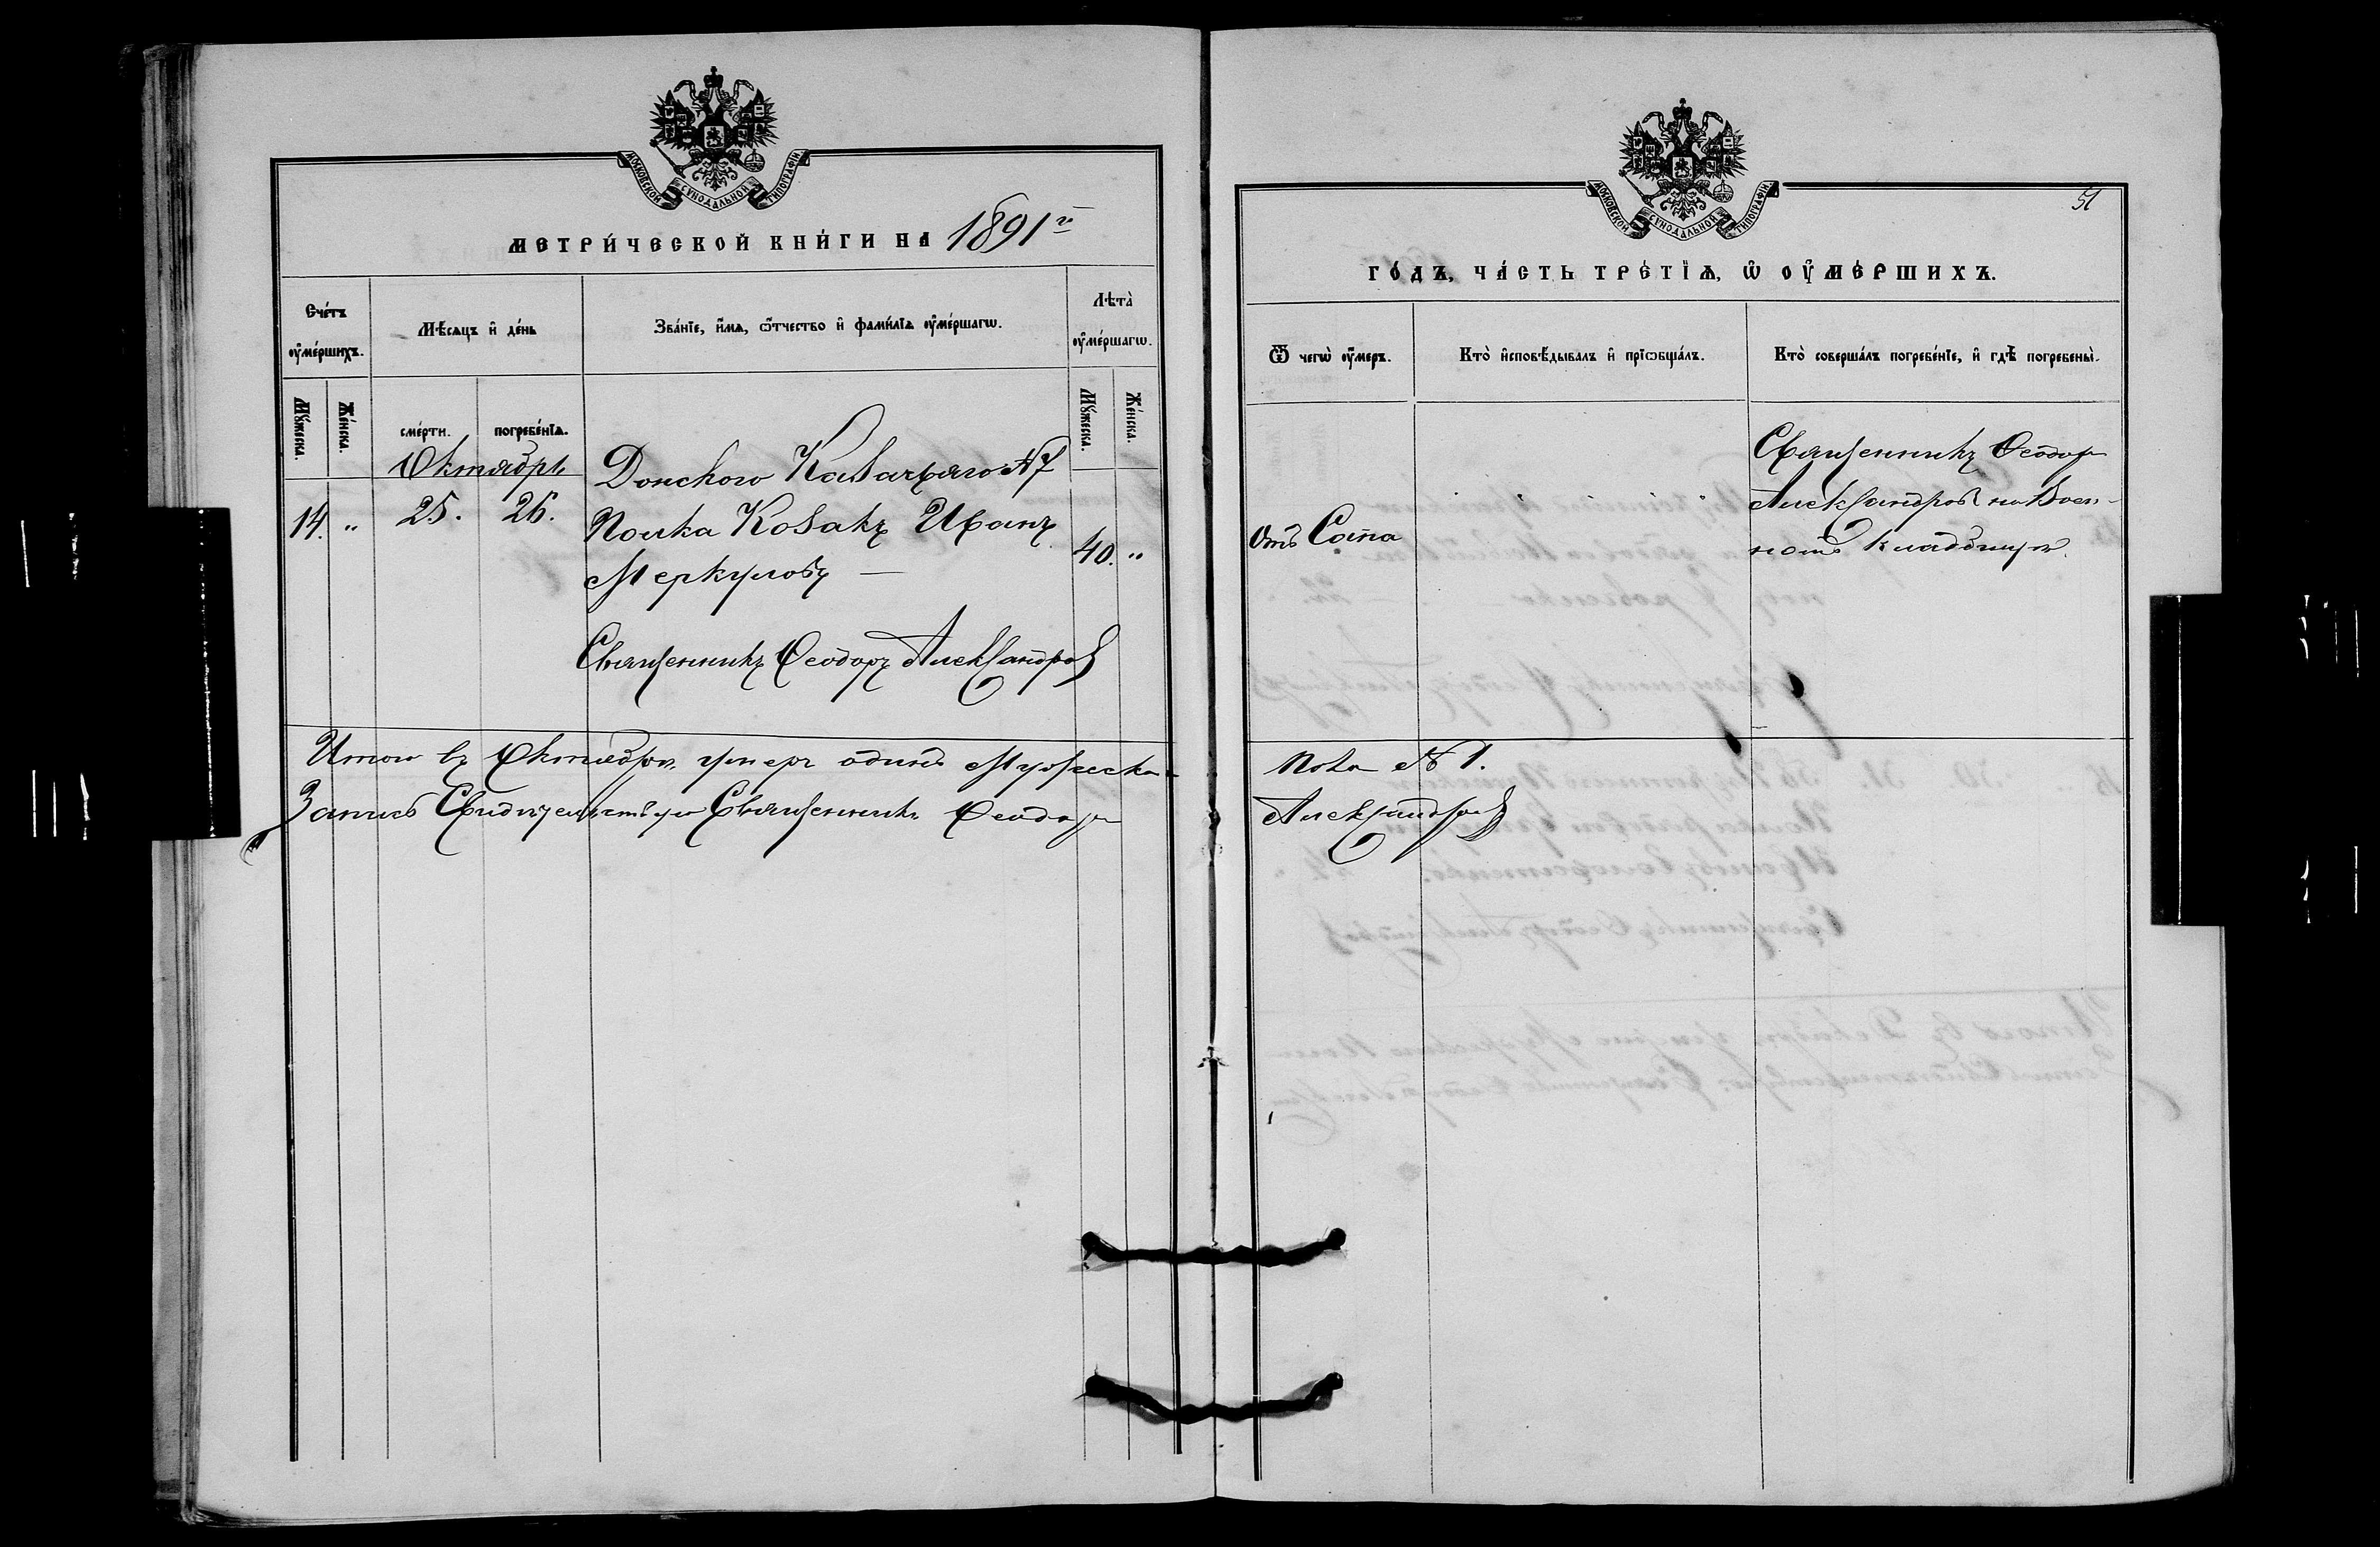 МОСКОВСКОЙ СѴНОДАЛЬНОЙ ТИПОГРАФІИ.
МЕТРИ́ЧЕСКОЙ КНИ́ГИ НА 1891 г.
Сче́тъ оу҆ме́ршихъ.
Мѣ́сяцъ и҆ де́нь
Зва́нїе, и҆́мѧ, ѻ҆́тчество и҆ фами́лїѧ оу҆ме́ршагѡ.
Лѣта̀ оу҆ме́ршагѡ.
Мꙋ́жеска.
Же́нска.
сме́рти.
погребе́нїѧ.
Мꙋ́жеска.
Же́нска.
Октябрь
14. " 25. 26. Донскаго Казачьяго №7
Полка Козакъ Иванъ
Меркуловъ — 40. "
Священникъ Ѳеодоръ Александров
Итого въ Октябрѣ умеръ одинъ Мужеска
Запись Свидѣтельствую Священникъ Ѳеодоръ
МОСКОВСКОЙ СѴНОДАЛЬНОЙ ТИПОГРАФІИ.
51
ГО́ДЪ, ЧА́СТЬ ТРЕ́ТЇѦ, Ѡ҆ ОУ҆МЕ́РШИХЪ.
Ѿ чегѡ̀ оу҆́меръ.
Кто̀ и҆сповѣ́дывалъ и҆ прїѡбща́лъ.
Кто̀ соверша́лъ погребе́нїе, и҆ гдѣ̀ погребены̀.
Священникъ Ѳеодоръ
Александров на Воен-
номъ Кладбищѣ.
Пола № 1.
Александров